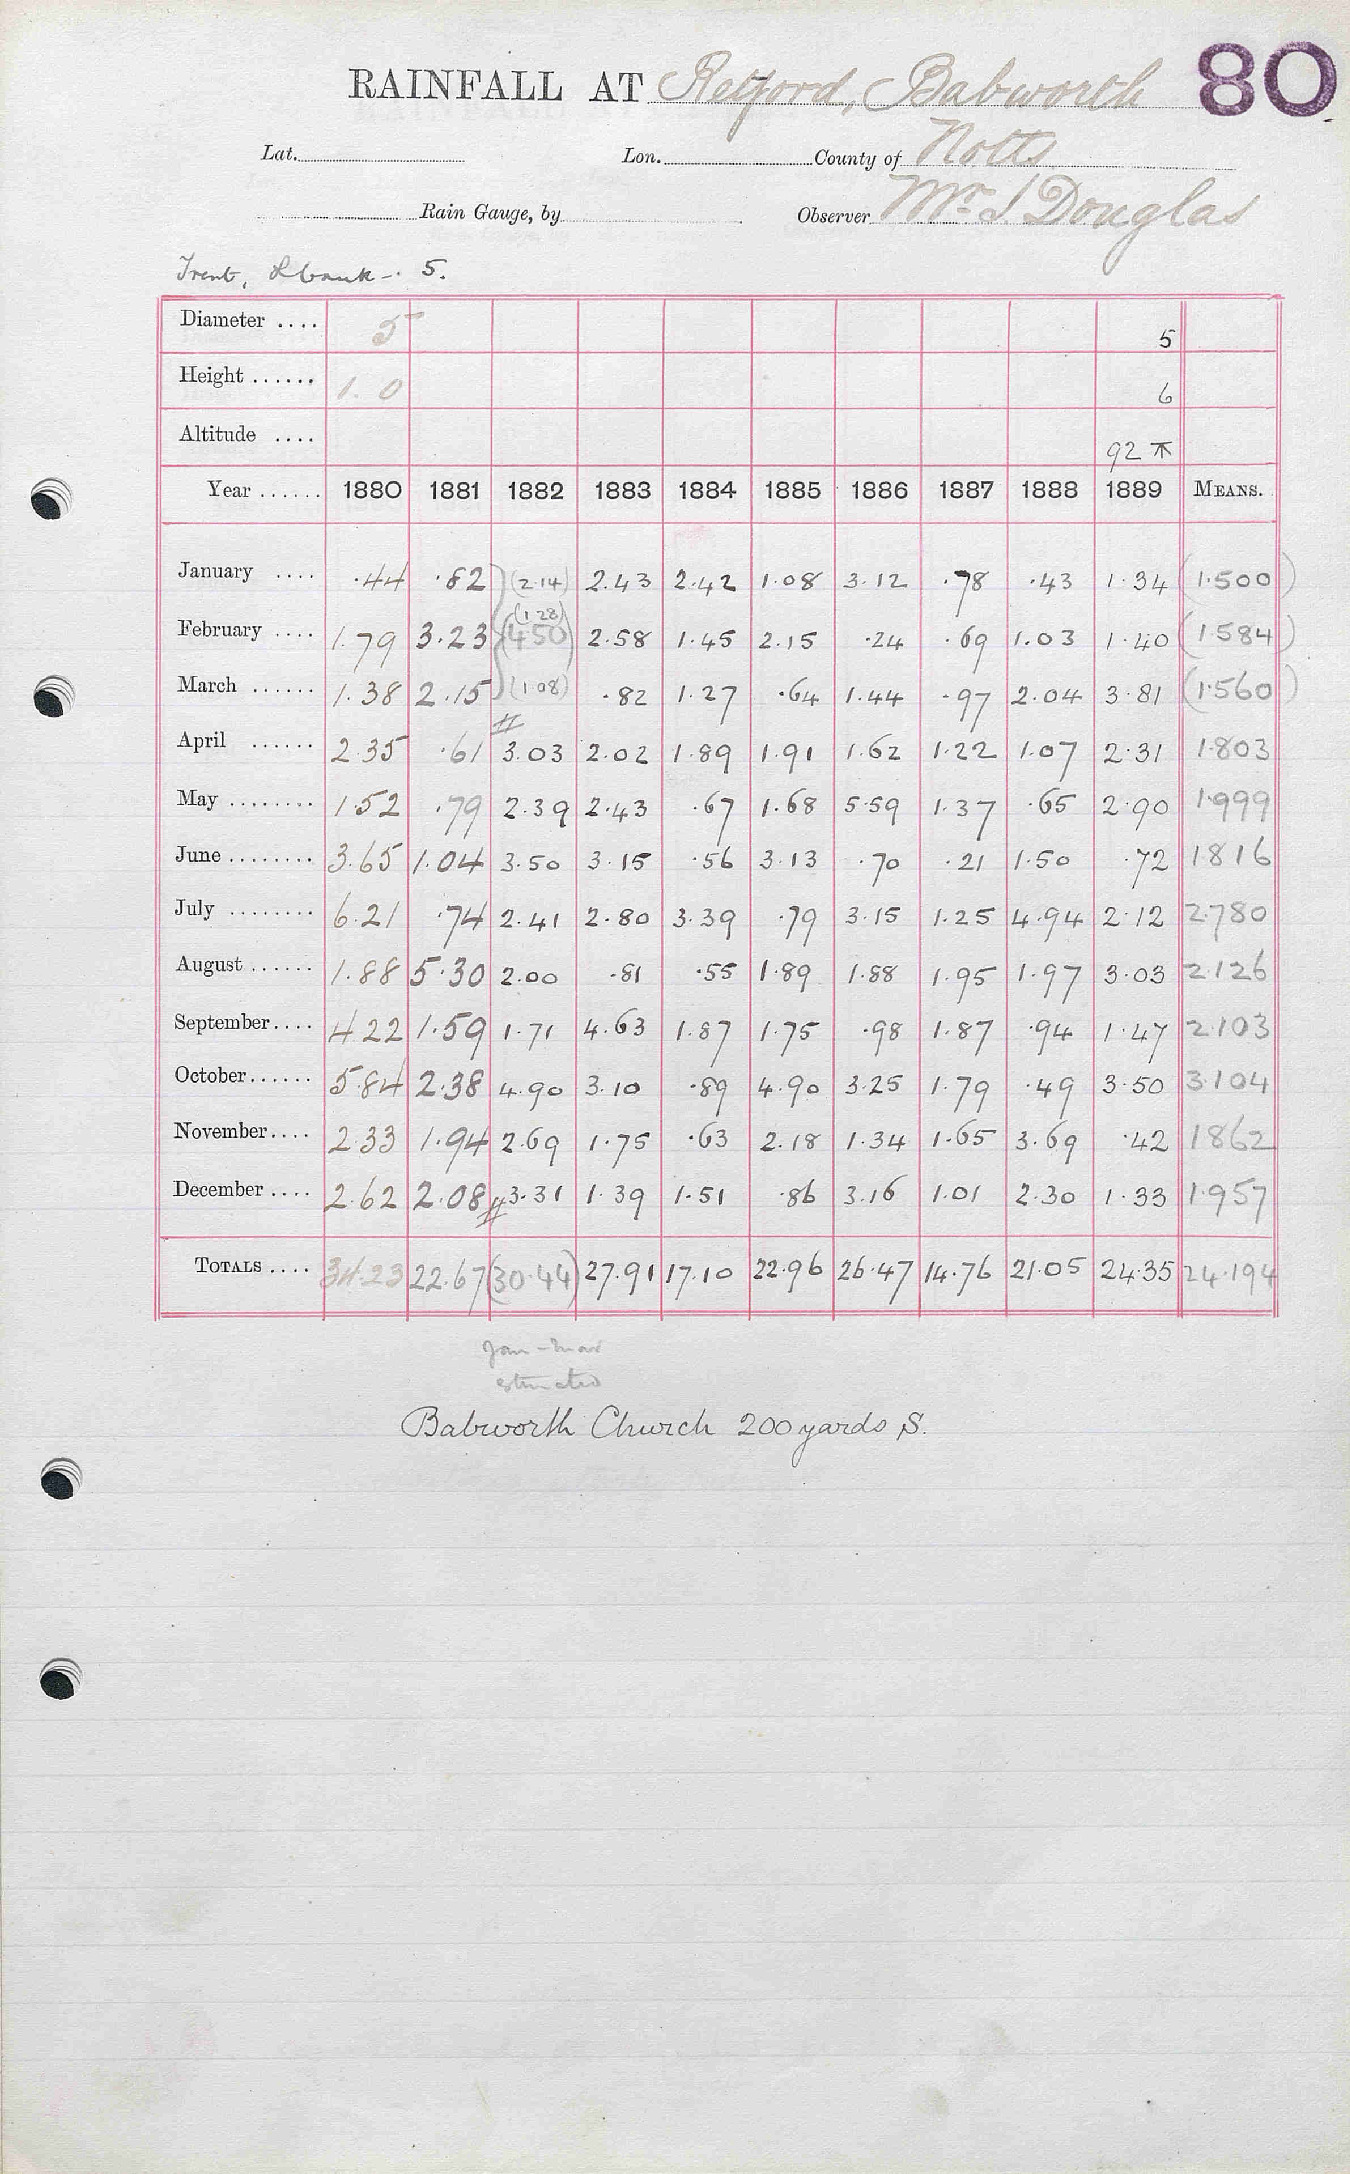 80
RAINFALL AT Retford, Babworth
Lat. Lon. County of Notts
Rain Gauge, by Observer Mr J Douglas
Trent, bank - 5.
Diameter .... 5 5
Height ...... 1. 0 6
Altitude .... 92
Year ...... 1880 1881 1882 1883 1884 1885 1886 1887 1888 1889 MEANS.
January .... .44 .82 (2.14) 2.43 2.42 1.08 3.12 .78 .43 1.34 (1.500)
February .... 1.79 3.23 (1.28) (4.50) 2.58 1.45 2.15 .24 .69 1.03 1.40 (1.584)
March ...... 1.38 2.15 (1.08) .82 1.27 .64 1.44 .97 2.04 3.81 (1.560)
April ...... 2.35 .61 3.03 2.02 1.89 1.91 1.62 1.22 1.07 2.31 1.803
May ........ 1.52 .79 2.39 2.43 .67 1.68 5.59 1.37 .65 2.90 1.999
June ........ 3.65 1.04 3.50 3.15 .56 3.13 .70 .21 1.50 .72 1816
July ........ 6.21 .74 2.41 2.80 3.39 .79 3.15 1.25 4.94 2.12 2.780
August ...... 1.88 5.30 2.00 .81 .55 1.89 1.88 1.95 1.97 3.03 2.126
September.... 4.22 1.59 1.71 4.63 1.87 1.75 .98 1.87 .94 1.47 2.103
October...... 5.84 2.38 4.90 3.10 .89 4.90 3.25 1.79 .49 3.50 3.104
November.... 2.33 1.94 2.69 1.75 .63 2.18 1.34 1.65 3.69 .42 1862
December .... 2.62 2.08 3.31 1.39 1.51 .86 3.16 1.01 2.30 1.33 1.957
TOTALS .... 34.23 22.67 (30.44) 27.91 17.10 22.96 26.47 14.76 21.05 24.35 24.194
Jan - Mar
estimated
Babworth Church 200 yards S.